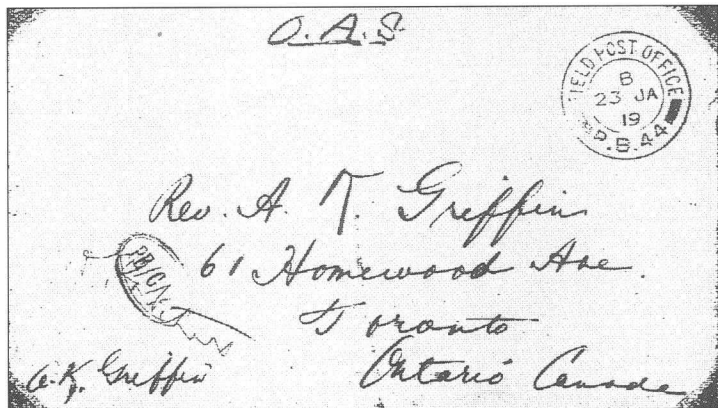 O.A.S
FIELD POST OFFICE
B
23 JA
19
P.B.44
Rev. A. K. Griffin
61 Homewood Ave.
Toronto
Ontario Canada
PB/C
A.K. Griffin